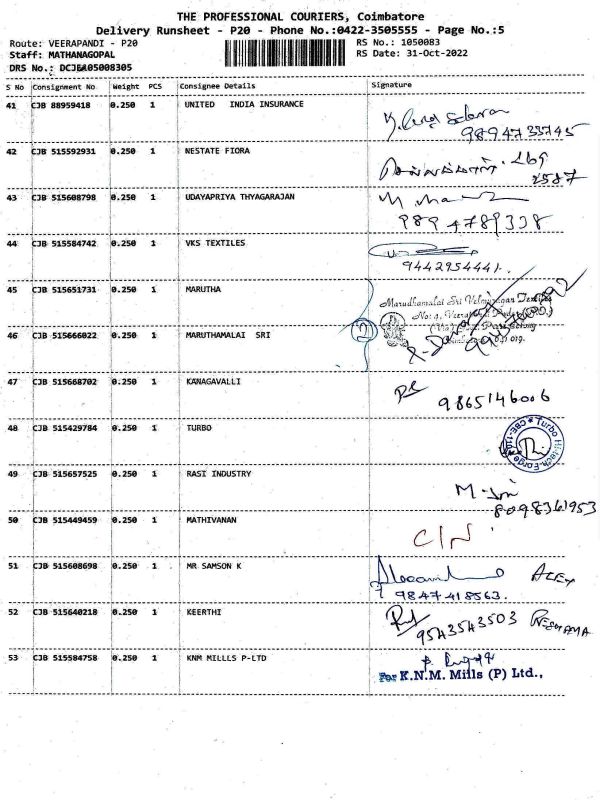 THE PROFESSIONAL COURIERS, Coimbatore
Delivery Runsheet - P20 - Phone No.:0422-3505555 - Page No.:5
Route: VEERAPANDI - P20
RS No.: 1050083
Staff: MATHANAGOPAL
RS Date: 31-Oct-2022
DRS No.:
S No Consignment No Weight PCS Consignee Details Signature
41 CJB 88959418 0.250 1 UNITED INDIA INSURANCE
9894733745
42 CJB 515592931 0.250 1 NESTATE FIORA
2587
43 CJB 515608798 0.250 1 UDAYAPRIYA THYAGARAJAN
9894789338
44 CJB 515584742 0.250 1 VKS TEXTILES
9442954441.
45 CJB 515651731 0.250 1 MARUTHA
Marudhamalai Sri Velmurugan Textiles
46 CJB 515666022 0.250 1 MARUTHAMALAI SRI
2
47 CJB 515668702 0.250 1 KANAGAVALLI
9865146006
48 CJB 515429784 0.250 1 TURBO
Turbo Hi-tech Forge
49 CJB 515657525 0.250 1 RASI INDUSTRY
8098361953
50 CJB 515449459 0.250 1 MATHIVANAN
C/N
51 CJB 515608698 0.250 1 MR SAMSON K
ALEX
9847418563.
52 CJB 515640218 0.250 1 KEERTHI
9543543503
53 CJB 515584758 0.250 1 KNM MILLLS P-LTD
For K.N.M. Mills (P) Ltd.,